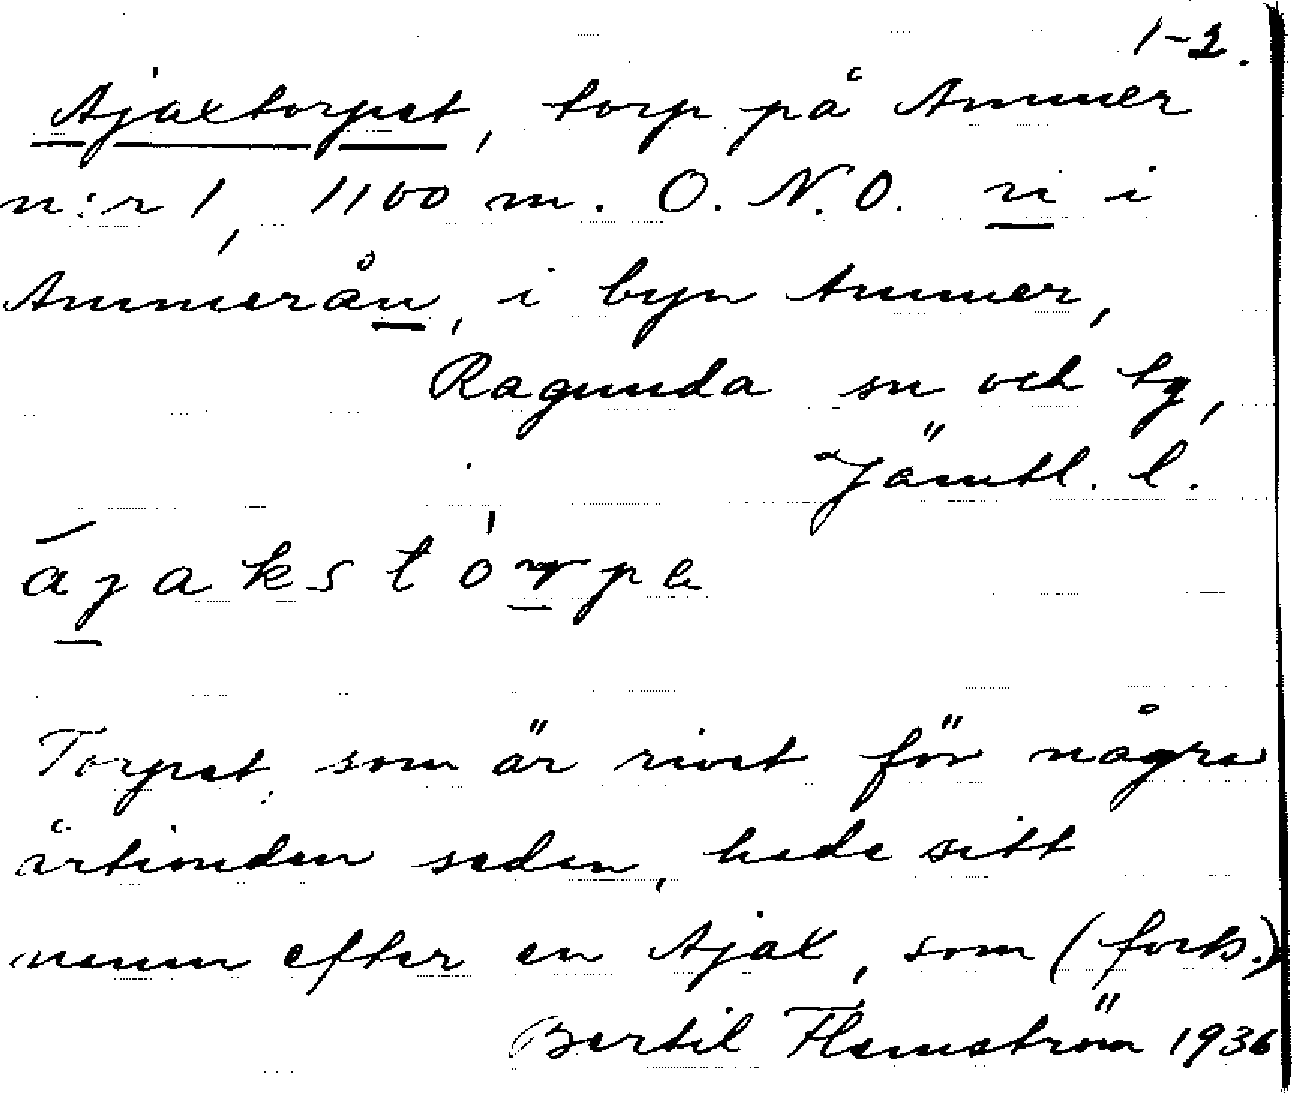 1-2.
Ajaxtorpet, torp på Ammer
n:r 1, 1100 m. O.N.O. vi i
Ammerån, i byn Ammer,
Ragunda sn och tg,
Jämtl. l.
ájakstórpe
Torpet, som är rivet för några
årtionden sedan, hade sitt
namn efter en Ajax, som (forts.)
Bertil Flemström 1936